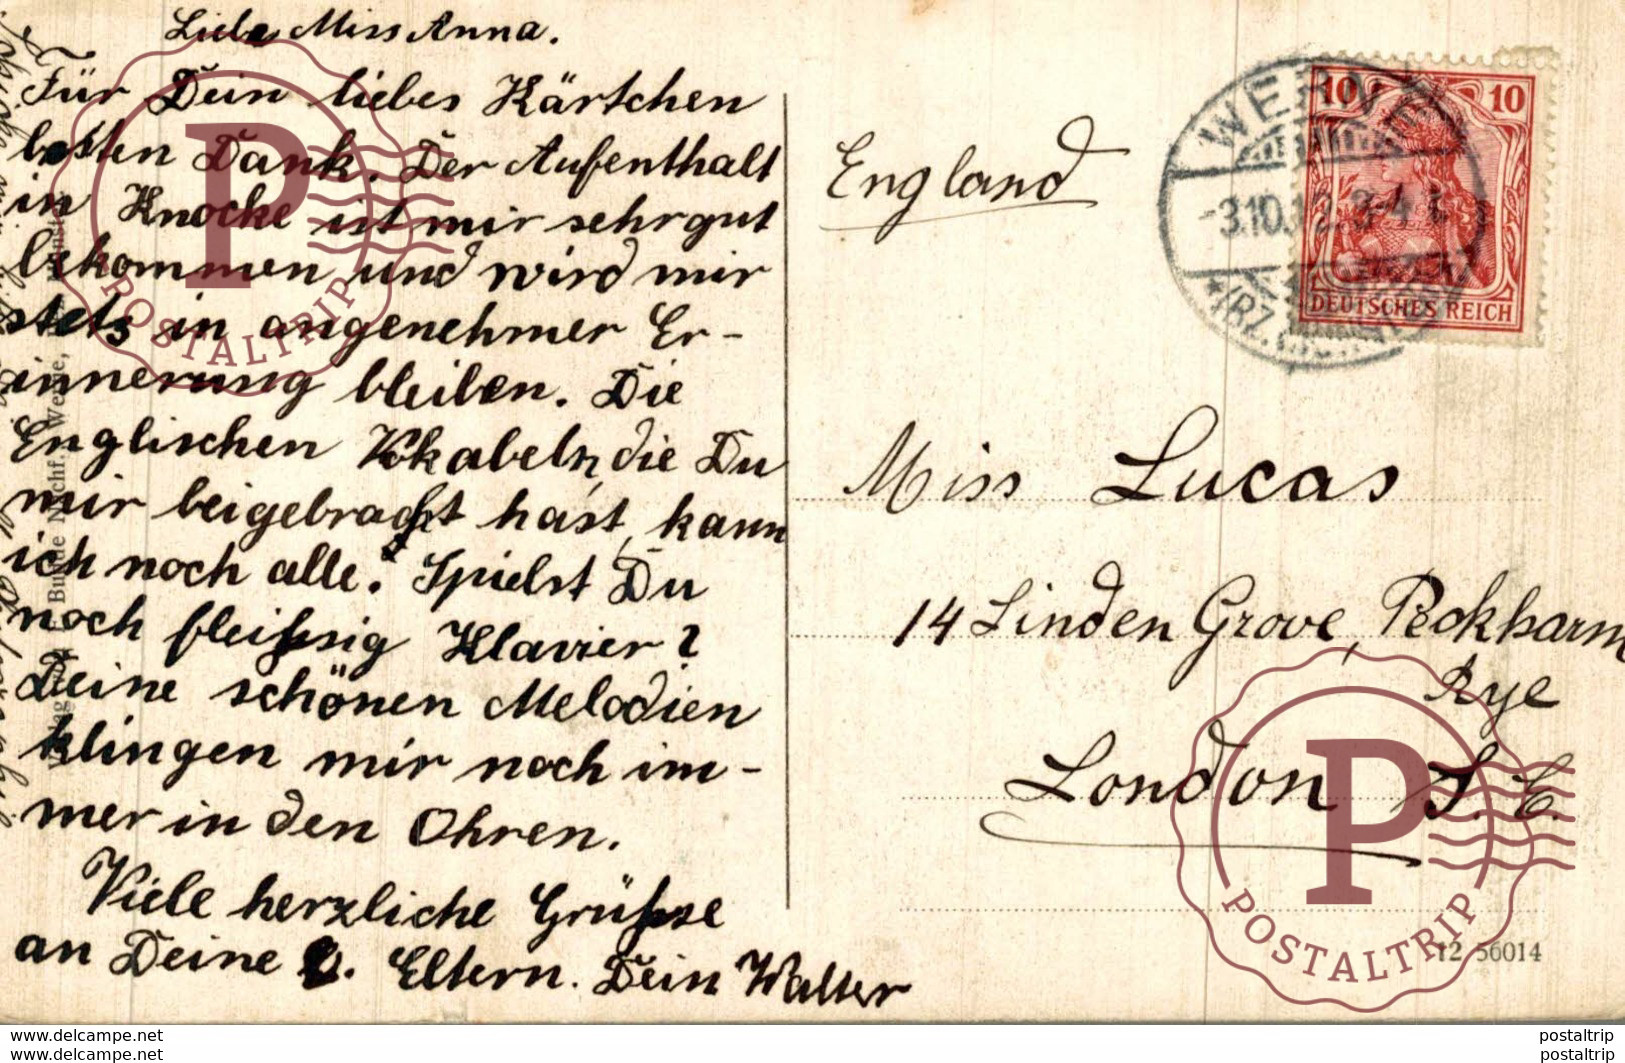 Liebe Miss Anna.
Für Dein liebes Kärtchen
besten Dank. Der Aufenthalt
in Knocke ist mir sehr gut
bekommen und wird mir
stets in angenehmer Er-
innerung bleiben. Die
Englischen Vokabeln, die Du
mir beigebracht hast, kann
ich noch alle. Spielst Du
noch fleißsig Klavier?
Deine schönen Melodien
klingen mir noch im-
mer in den Ohren.
Viele herzliche Grüßse
an Deine l. Eltern. Dein Walter
England
WERNE
-3.10.12. 3-4
*(BZ.
10 10
DEUTSCHES REICH
Miss Lucas
14 Linden Grove, Peckham
Rye
London S.E.
12 56014
P
POSTALTRIP
P
POSTALTRIP
https://www.delcampe.net
https://www.delcampe.net
postaltrip
postaltrip